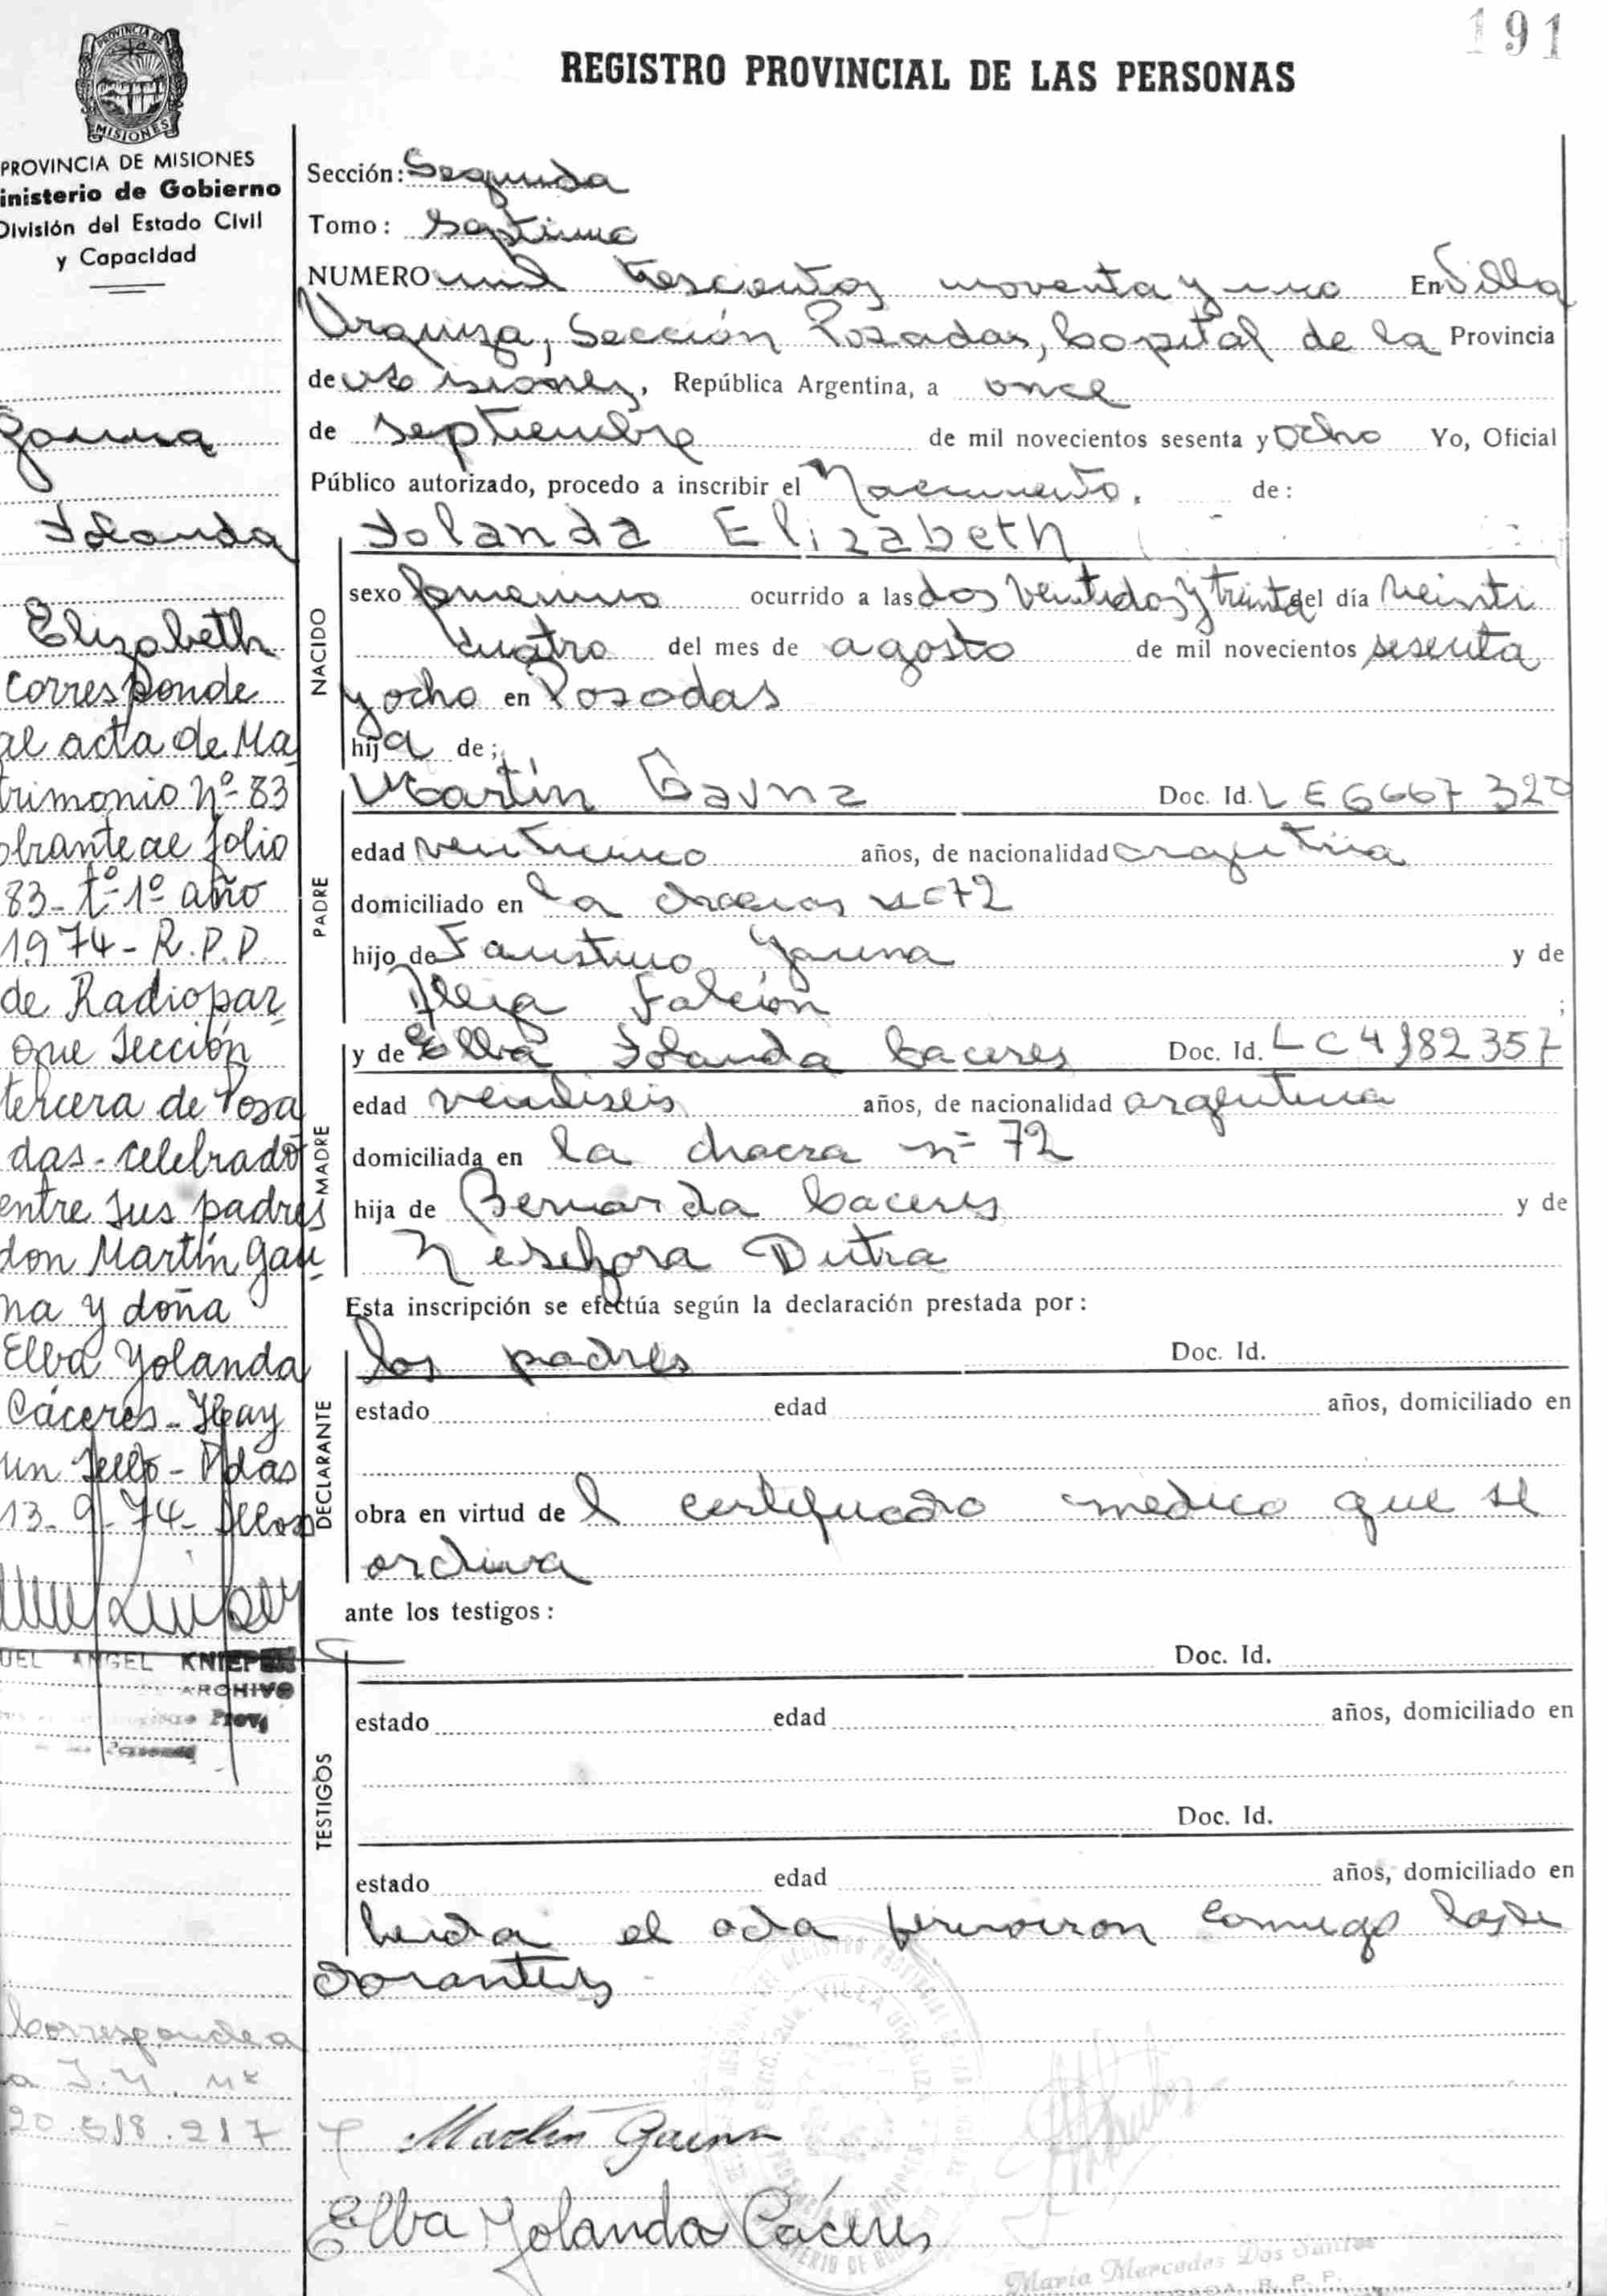 191
REGISTRO PROVINCIAL DE LAS PERSONAS
PROVINCIA DE
MISIONES
PROVINCIA DE MISIONES
inisterio de Gobierno
División del Estado Civil
y Capacidad
Gauna
Yolanda
Elizabeth
corresponde
al acta de Ma
trimonio nº 83
obrante al folio
83 - tº 1º año
1974 - R.P.P.
de Radiopar
que Sección
tercera de Posa
das - celebrado
entre sus padres
don Martín Gau
na y doña
Elba Yolanda
Cáceres - Hay
un sello - Pdas
13-9-74-
UEL ANGEL KNIEPER
ARCHIVO
Prov.
Personas
Corresponde a
la I.N. Nº
20.618.217
Sección: Segunda
Tomo: Septimo
NUMERO mil trescientos noventa y uno En Villa
Urquiza, Sección Posadas, Capital de la Provincia
de Misiones, República Argentina, a once
de Septiembre de mil novecientos sesenta y Ocho Yo, Oficial
Público autorizado, procedo a inscribir el Nacimiento. de:
Yolanda Elizabeth
NACIDO
sexo femenino ocurrido a las dos Ventidos y treinta del día Veinti
cuatro del mes de agosto de mil novecientos sesenta
y ocho en Posadas
hija de;
PADRE
Martín Gauna Doc. Id. L E 6667320
edad venticinco años, de nacionalidad argentina
domiciliado en la chacras 72
hijo de Faustino Gauna y de
Falcón ;
MADRE
y de Elba Yolanda Caceres Doc. Id. LC 4182357
edad ventiseis años, de nacionalidad argentina
domiciliada en la chacra nº 72
hija de Bernarda Caceres y de
Dutra
Esta inscripción se efectúa según la declaración prestada por:
DECLARANTE
los padres Doc. Id.
estado edad años, domiciliado en
obra en virtud de l certificado medico que se
archiva
ante los testigos:
TESTIGOS
Doc. Id.
estado edad años, domiciliado en
Doc. Id.
estado edad años, domiciliado en
Leida el acta firmaron conmigo los de
clarantes
Martin Gauna
Elba Yolanda Cáceres
VILLA URQUIZA
María Mercedes Dos Santos
R. P. P.